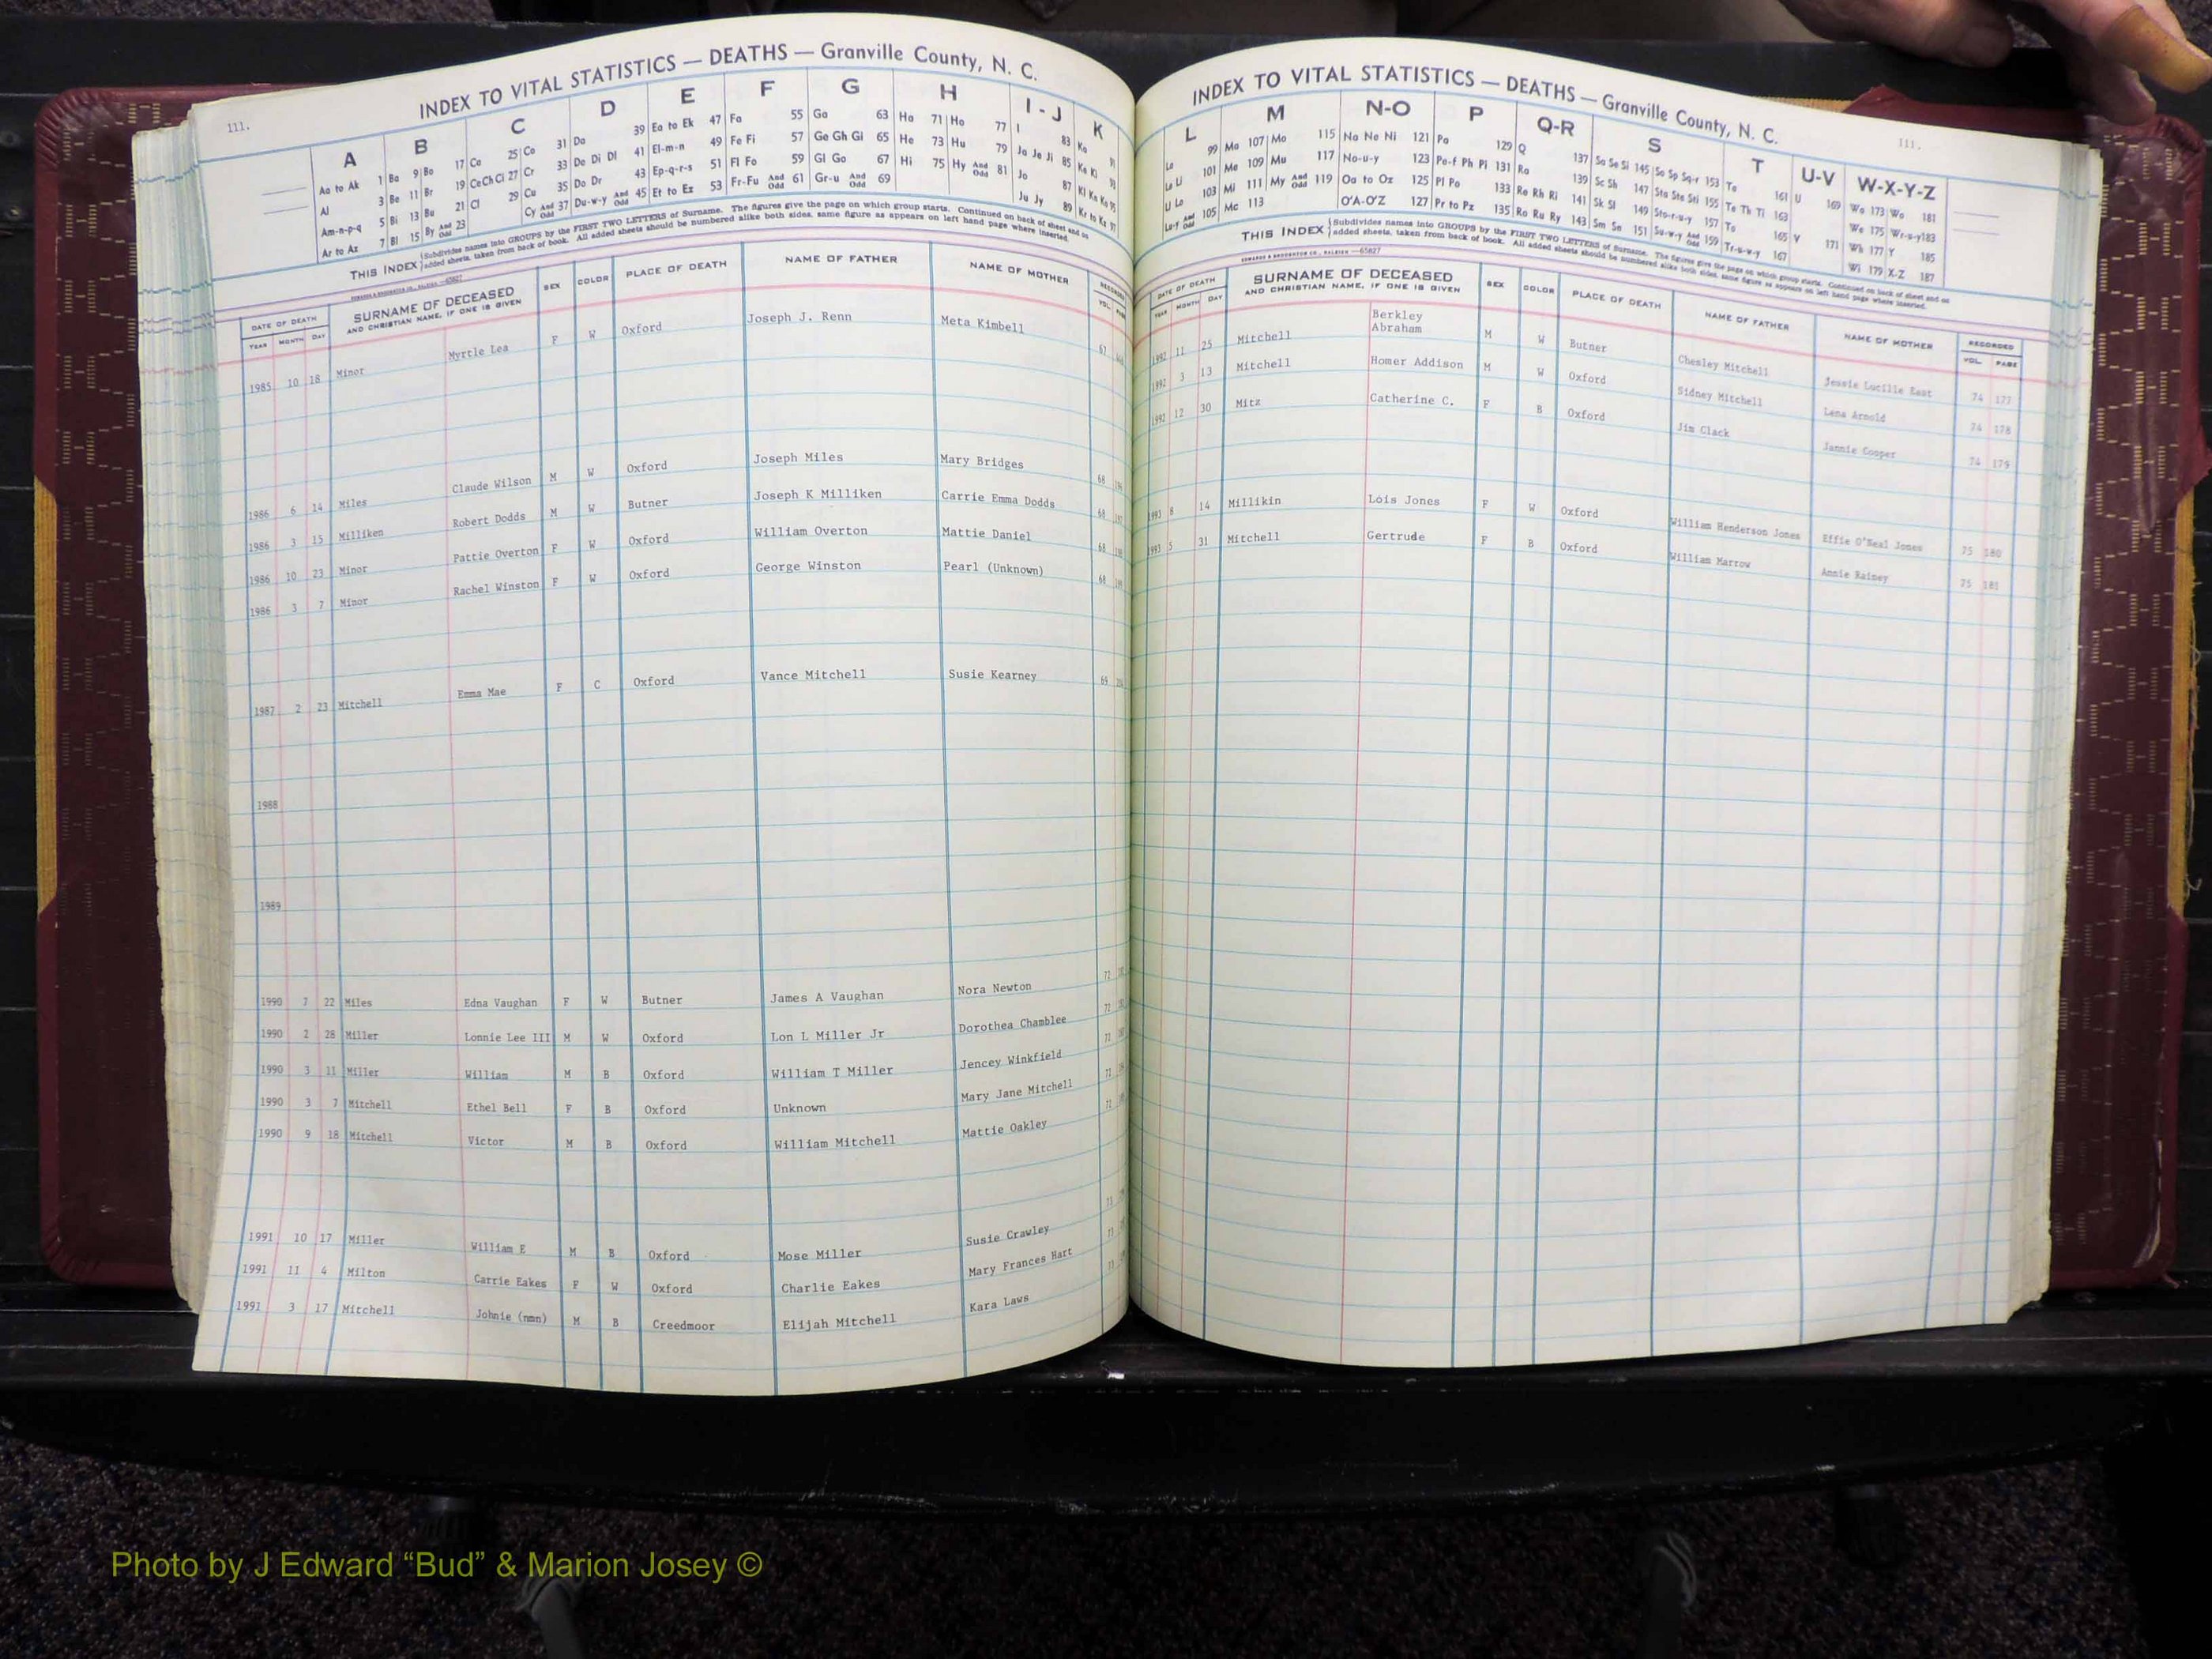 111.
INDEX TO VITAL STATISTICS — DEATHS — Granville County, N. C.
A B C D E F G H I - J K
Aa to Ak 1 Ba 9 Bo 17 Ca 25 Co 31 Da 39 Ea to Ek 47 Fa 55 Ga 63 Ha 71 Ho 77 I 83 Ka 91
Al 3 Be 11 Br 19 Ce Ch Ci 27 Cr 33 De Di Dl 41 El-m-n 49 Fe Fi 57 Ge Gh Gi 65 He 73 Hu 79 Ja Je Ji 85 Ke Ki 93
Am-n-p-q 5 Bi 13 Bu 21 Cl 29 Cu 35 Do Dr 43 Ep-q-r-s 51 Fl Fo 59 Gl Go 67 Hi 75 Hy And Odd 81 Jo 87 Kl Kn Ko 95
Ar to Az 7 Bl 15 By And Odd 23 Cy And Odd 37 Du-w-y And Odd 45 Et to Ez 53 Fr-Fu And Odd 61 Gr-u And Odd 69 Ju Jy 89 Kr to Ky 97
THIS INDEX Subdivides names into GROUPS by the FIRST TWO LETTERS of Surname. The figures give the page on which group starts. Continued on back of sheet and on
added sheets, taken from back of book. All added sheets should be numbered alike both sides, same figure as appears on left hand page where inserted.
DATE OF DEATH YEAR MONTH DAY SURNAME OF DECEASED AND CHRISTIAN NAME, IF ONE IS GIVEN SEX COLOR PLACE OF DEATH NAME OF FATHER NAME OF MOTHER RECORDED VOL. PAGE
1985 10 18 Minor Myrtle Lea F W Oxford Joseph J. Renn Meta Kimbell 67
1986 6 14 Miles Claude Wilson M W Oxford Joseph Miles Mary Bridges 68
1986 3 15 Milliken Robert Dodds M W Butner Joseph K Milliken Carrie Emma Dodds 68
1986 10 23 Minor Pattie Overton F W Oxford William Overton Mattie Daniel 68
1986 3 7 Minor Rachel Winston F W Oxford George Winston Pearl (Unknown) 68
1987 2 23 Mitchell Emma Mae F C Oxford Vance Mitchell Susie Kearney 69
1988
1989
1990 7 22 Miles Edna Vaughan F W Butner James A Vaughan Nora Newton 72
1990 2 28 Miller Lonnie Lee III M W Oxford Lon L Miller Jr Dorothea Chamblee 72
1990 3 11 Miller William M B Oxford William T Miller Jencey Winkfield 72
1990 3 7 Mitchell Ethel Bell F B Oxford Unknown Mary Jane Mitchell 72
1990 9 18 Mitchell Victor M B Oxford William Mitchell Mattie Oakley 72
1991 10 17 Miller William E M B Oxford Mose Miller Susie Crawley 73
1991 11 4 Milton Carrie Eakes F W Oxford Charlie Eakes Mary Frances Hart 73
1991 3 17 Mitchell Johnie (nmn) M B Creedmoor Elijah Mitchell Kara Laws 73
INDEX TO VITAL STATISTICS — DEATHS — Granville County, N. C.
111.
L M N-O P Q-R S T U-V W-X-Y-Z
La 99 Ma 107 Mo 115 Na Ne Ni 121 Pa 129 Q 137 Sa Se Si 145 So Sp Sq-r 153 Ta 161 U 169 Wa 173 Wo 181
Le Li 101 Me 109 Mu 117 No-u-y 123 Pe-f Ph Pi 131 Ra 139 Sc Sh 147 Sta Ste Sti 155 Te Th Ti 163 We 175 Wr-u-y 183
Ll Lo 103 Mi 111 My And Odd 119 Oa to Oz 125 Pl Po 133 Re Rh Ri 141 Sk Sl 149 Sto-r-u-y 157 To 165 V 171 Wh 177 Y 185
Lu-y And Odd 105 Mc 113 O'A-O'Z 127 Pr to Pz 135 Ro Ru Ry 143 Sm Sn 151 Su-w-y And Odd 159 Tr-u-w-y 167 Wi 179 X-Z 187
THIS INDEX Subdivides names into GROUPS by the FIRST TWO LETTERS of Surname. The figures give the page on which group starts. Continued on back of sheet and on
added sheets, taken from back of book. All added sheets should be numbered alike both sides, same figure as appears on left hand page where inserted.
DATE OF DEATH YEAR MONTH DAY SURNAME OF DECEASED AND CHRISTIAN NAME, IF ONE IS GIVEN SEX COLOR PLACE OF DEATH NAME OF FATHER NAME OF MOTHER RECORDED VOL. PAGE
1992 11 25 Mitchell Berkley Abraham M W Butner Chesley Mitchell Jessie Lucille East 74 177
1992 3 13 Mitchell Homer Addison M W Oxford Sidney Mitchell Lena Arnold 74 178
1992 12 30 Mitz Catherine C. F B Oxford Jim Clack Jannie Cooper 74 179
1993 8 14 Millikin Lois Jones F W Oxford William Henderson Jones Effie O'Neal Jones 75 180
1993 5 31 Mitchell Gertrude F B Oxford William Marrow Annie Rainey 75 181
Photo by J Edward “Bud” & Marion Josey ©